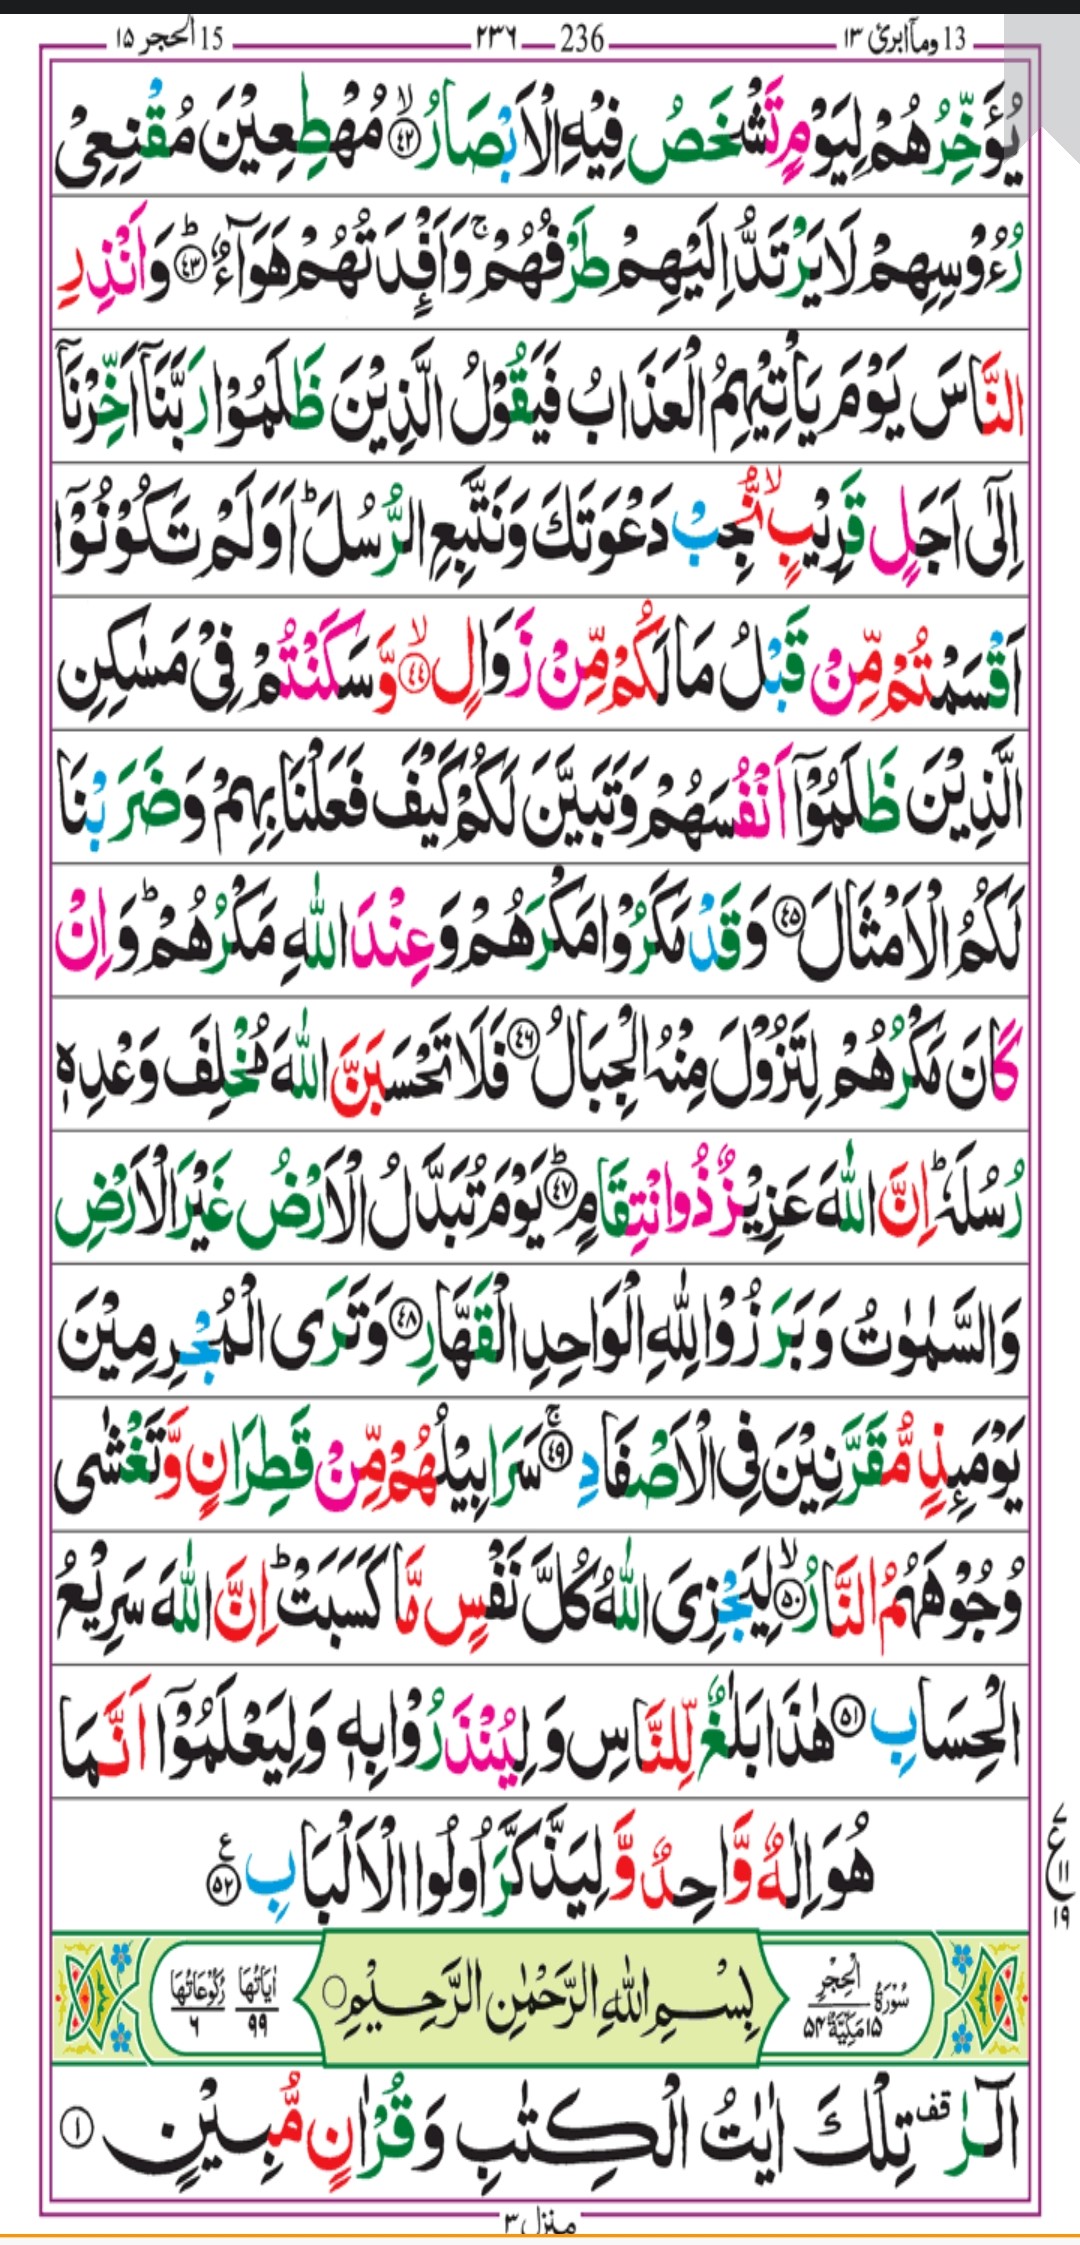 13 ومآ ابرئ ١٣
236 ٢٣٦
15 الحجر ١۵
يُؤَخِّرُهُمْ لِيَوْمٍ تَشْخَصُ فِيْهِ الْاَبْصَارُ ۙ‏﴿۴۲﴾ مُهْطِعِيْنَ مُقْنِعِىْ
رُءُوْسِهِمْ لَا يَرْتَدُّ اِلَيْهِمْ طَرْفُهُمْ ۚ وَاَفْـِٕدَتُهُمْ هَوَآءٌ ؕ‏﴿۴۳﴾ وَاَنْذِرِ
النَّاسَ يَوْمَ يَاْتِيْهِمُ الْعَذَابُ فَيَقُوْلُ الَّذِيْنَ ظَلَمُوْا رَبَّنَاۤ اَخِّرْنَاۤ
اِلٰٓى اَجَلٍ قَرِيْبٍ ۙ نُّجِبْ دَعْوَتَكَ وَنَتَّبِعِ الرُّسُلَ ؕ اَوَلَمْ تَكُوْنُوْۤا
اَقْسَمْتُمْ مِّنْ قَبْلُ مَا لَكُمْ مِّنْ زَوَالٍ ۙ‏﴿۴۴﴾ وَّسَكَنْتُمْ فِىْ مَسٰكِنِ
الَّذِيْنَ ظَلَمُوْۤا اَنْفُسَهُمْ وَتَبَيَّنَ لَكُمْ كَيْفَ فَعَلْنَا بِهِمْ وَضَرَبْنَا
لَكُمُ الْاَمْثَالَ ‏﴿۴۵﴾ وَقَدْ مَكَرُوْا مَكْرَهُمْ وَعِنْدَ اللّٰهِ مَكْرُهُمْ ؕ وَاِنْ
كَانَ مَكْرُهُمْ لِتَزُوْلَ مِنْهُ الْجِبَالُ ‏﴿۴۶﴾ فَلَا تَحْسَبَنَّ اللّٰهَ مُخْلِفَ وَعْدِهٖ
رُسُلَهٗ ؕ اِنَّ اللّٰهَ عَزِيْزٌ ذُوانْتِقَامٍ ؕ‏﴿۴۷﴾ يَوْمَ تُبَدَّلُ الْاَرْضُ غَيْرَ الْاَرْضِ
وَالسَّمٰوٰتُ وَبَرَزُوْا لِلّٰهِ الْوَاحِدِ الْقَهَّارِ ‏﴿۴۸﴾ وَتَرَى الْمُجْرِمِيْنَ
يَوْمَٮِٕذٍ مُّقَرَّنِيْنَ فِى الْاَصْفَادِ ۚ‏﴿۴۹﴾ سَرَابِيْلُهُمْ مِّنْ قَطِرَانٍ وَّتَغْشٰى
وُجُوْهَهُمُ النَّارُ ۙ‏﴿۵۰﴾ لِيَجْزِىَ اللّٰهُ كُلَّ نَفْسٍ مَّا كَسَبَتْ ؕ اِنَّ اللّٰهَ سَرِيْعُ
الْحِسَابِ ‏﴿۵۱﴾ هٰذَا بَلٰغٌ لِّلنَّاسِ وَلِيُنْذَرُوْا بِهٖ وَلِيَعْلَمُوْۤا اَنَّمَا
هُوَ اِلٰهٌ وَّاحِدٌ وَّلِيَذَّكَّرَ اُولُوا الْاَلْبَابِ ‏﴿۵۲﴾ ع
ع ٧ ١١ ١٩
سُوْرَةُ الْحِجْرِ ١۵ مَكِّيَّةٌ ۵۴
بِسْمِ اللّٰهِ الرَّحْمٰنِ الرَّحِيْمِ
اٰيَاتُهَا ٩٩ رُكُوْعَاتُهَا ٦
الٓرٰ قف تِلْكَ اٰيٰتُ الْكِتٰبِ وَقُرْاٰنٍ مُّبِيْنٍ ‏﴿۱﴾
منزل ٣